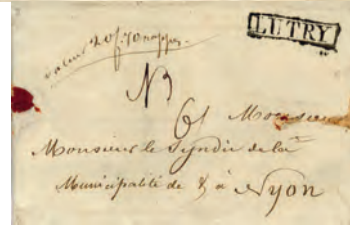 LUTRY
valeur 20f:70 rappes
N3
61 Monsieur
Monsieur le Syndic de la
Municipalité de & à Nyon